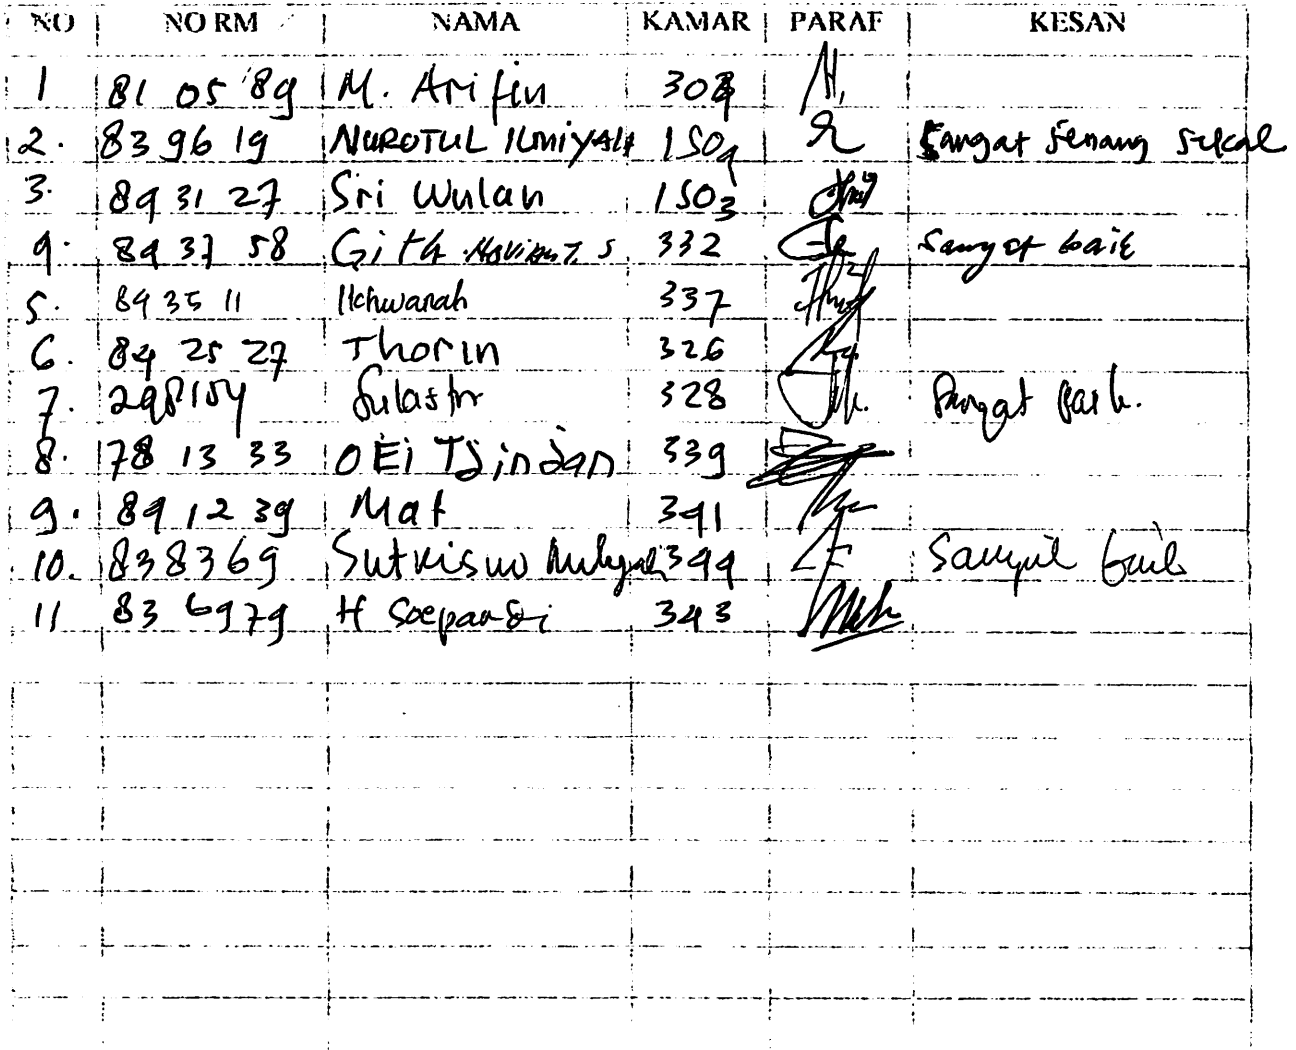 NO NO RM NAMA KAMAR PARAF KESAN
1 81 05 89 M. Arifin
2. 83 96 19 NUROTUL ILMIYAH 1504 Sangat Senang Sekal
3. 89 31 27 Sri Wulan 1503
4. 89 37 58 Gita 332 Sangat baik
5. 89 35 11 Ikhwanah 337
6. 89 25 27 Thorin 326
7. 298154 Sulastr 328 Sangat baik.
8. 78 13 33 OEi TJinDan 339
9. 89 12 39 Mat 341
10. 838369 Sutrisno 344 baik
11 83 6979 H Soepardi 343